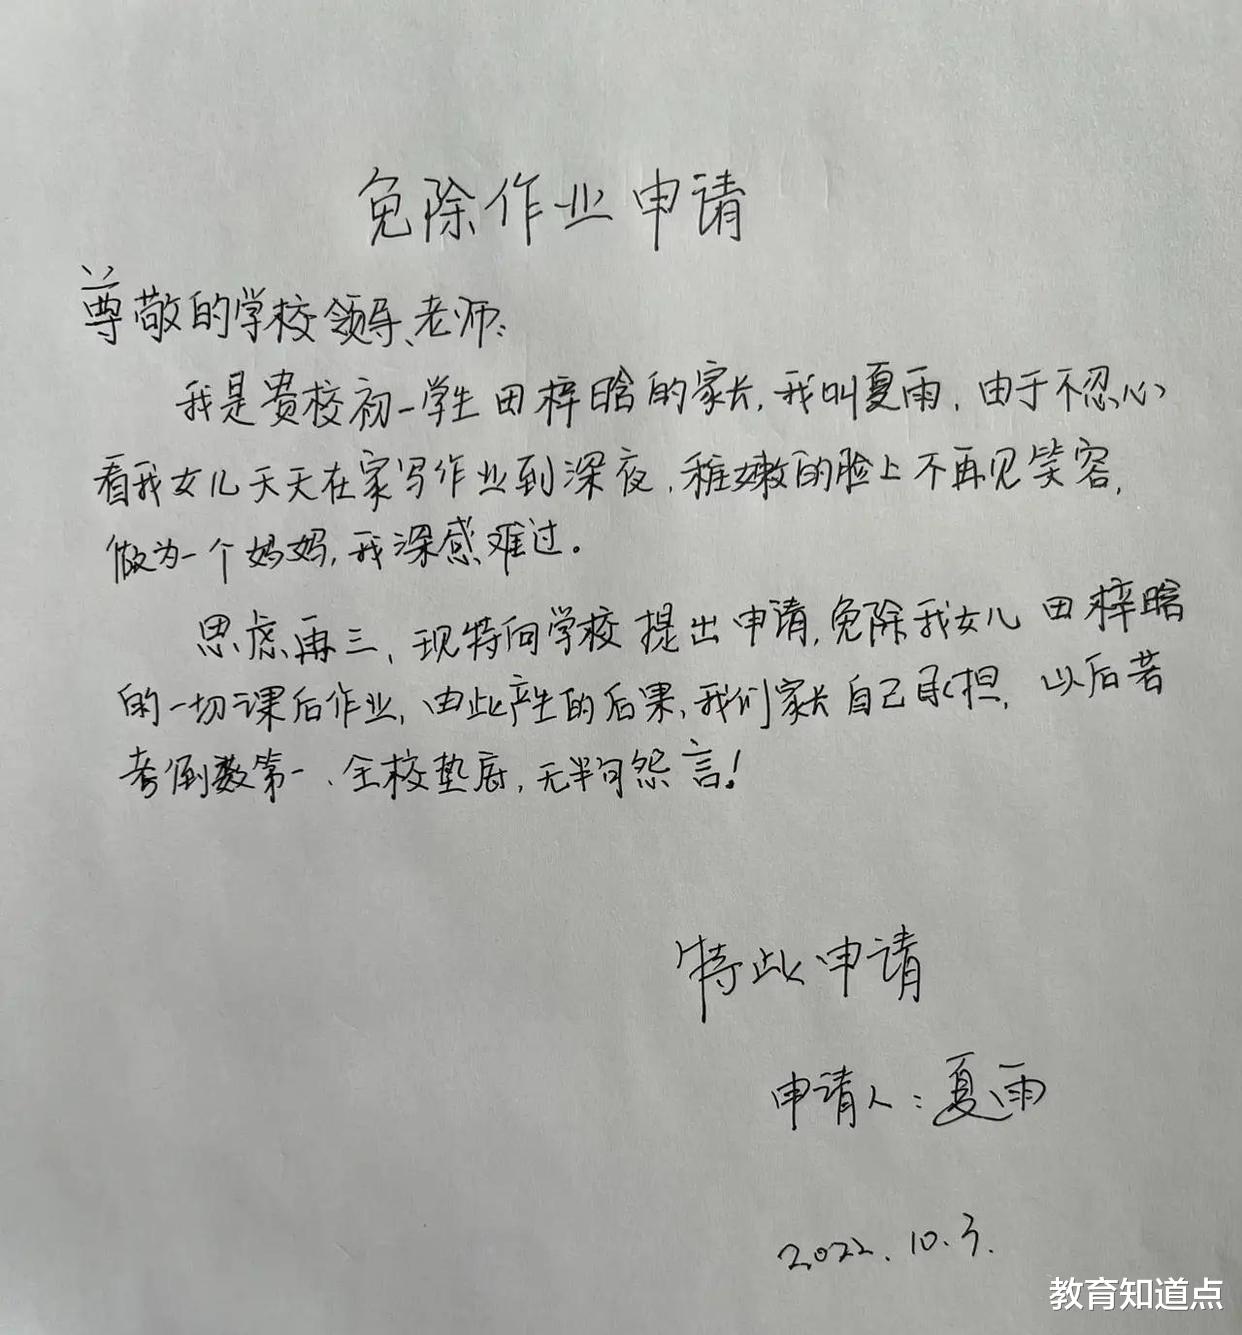 免除作业申请
尊敬的学校领导、老师:
我是贵校初一学生田梓晗的家长,我叫夏雨,由于不忍心
看我女儿天天在家写作业到深夜,稚嫩的脸上不再见笑容,
做为一个妈妈,我深感难过。
思虑再三,现特向学校提出申请,免除我女儿田梓晗
的一切课后作业,由此产生的后果,我们家长自己承担,以后若
考倒数第一、全校垫底,无半句怨言!
特此申请
申请人:夏雨
2022.10.3.
教育知道点